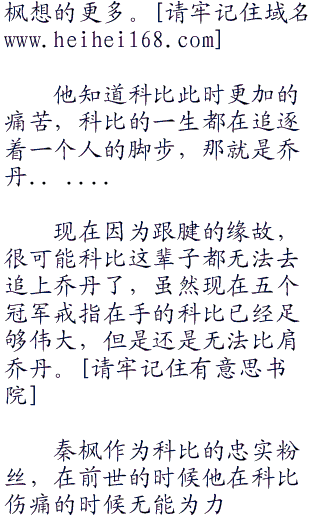 枫想的更多。[请牢记住域名
www.heihei168.com]
他知道科比此时更加的
痛苦，科比的一生都在追逐
着一个人的脚步，那就是乔
丹.. ....
现在因为跟腱的缘故，
很可能科比这辈子都无法去
追上乔丹了，虽然现在五个
冠军戒指在手的科比已经足
够伟大，但是还是无法比肩
乔丹。[请牢记住有意思书
院]
秦枫作为科比的忠实粉
丝，在前世的时候他在科比
伤痛的时候无能为力